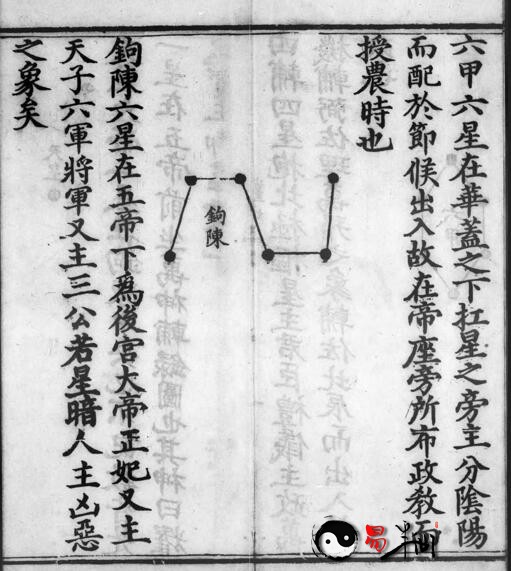 六甲六星在華蓋之下扛星之旁主分陰陽
而配於節候出入故在帝座旁所布政教而
授農時也
鉤陳
鉤陳六星在五帝下為後宮大帝正妃又主
天子六軍將軍又主三公若星暗人主凶惡
之象矣
易